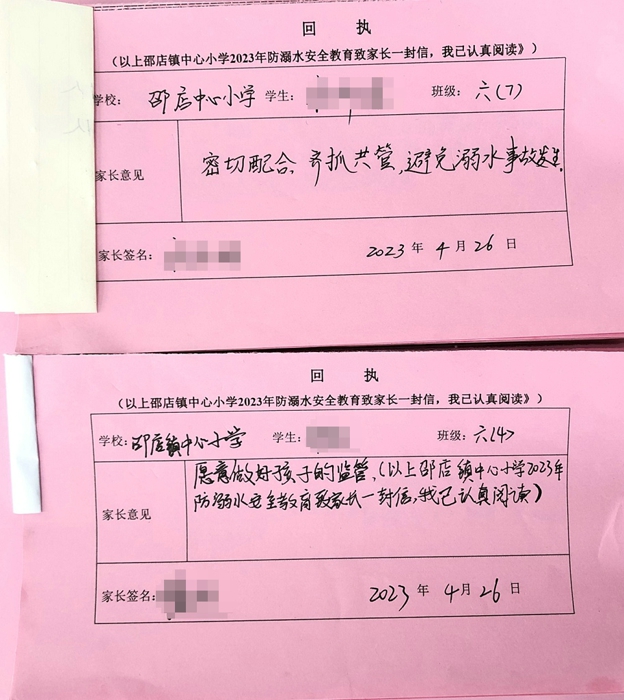 回 执
（以上邵店镇中心小学2023年防溺水安全教育致家长一封信，我已认真阅读》）
学校： 邵店中心小学 学生： 班级： 六(7)
家长意见
密切配合、齐抓共管，避免溺水事故发生。
家长签名： 2023 年 4 月 26 日
回 执
（以上邵店镇中心小学2023年防溺水安全教育致家长一封信，我已认真阅读》）
学校： 邵店镇中心小学 学生： 班级： 六(4)
愿意做好孩子的监管，(以上邵店镇中心小学2023年
家长意见
防溺水安全教育致家长一封信，我已认真阅读)
家长签名： 2023 年 4月 26 日